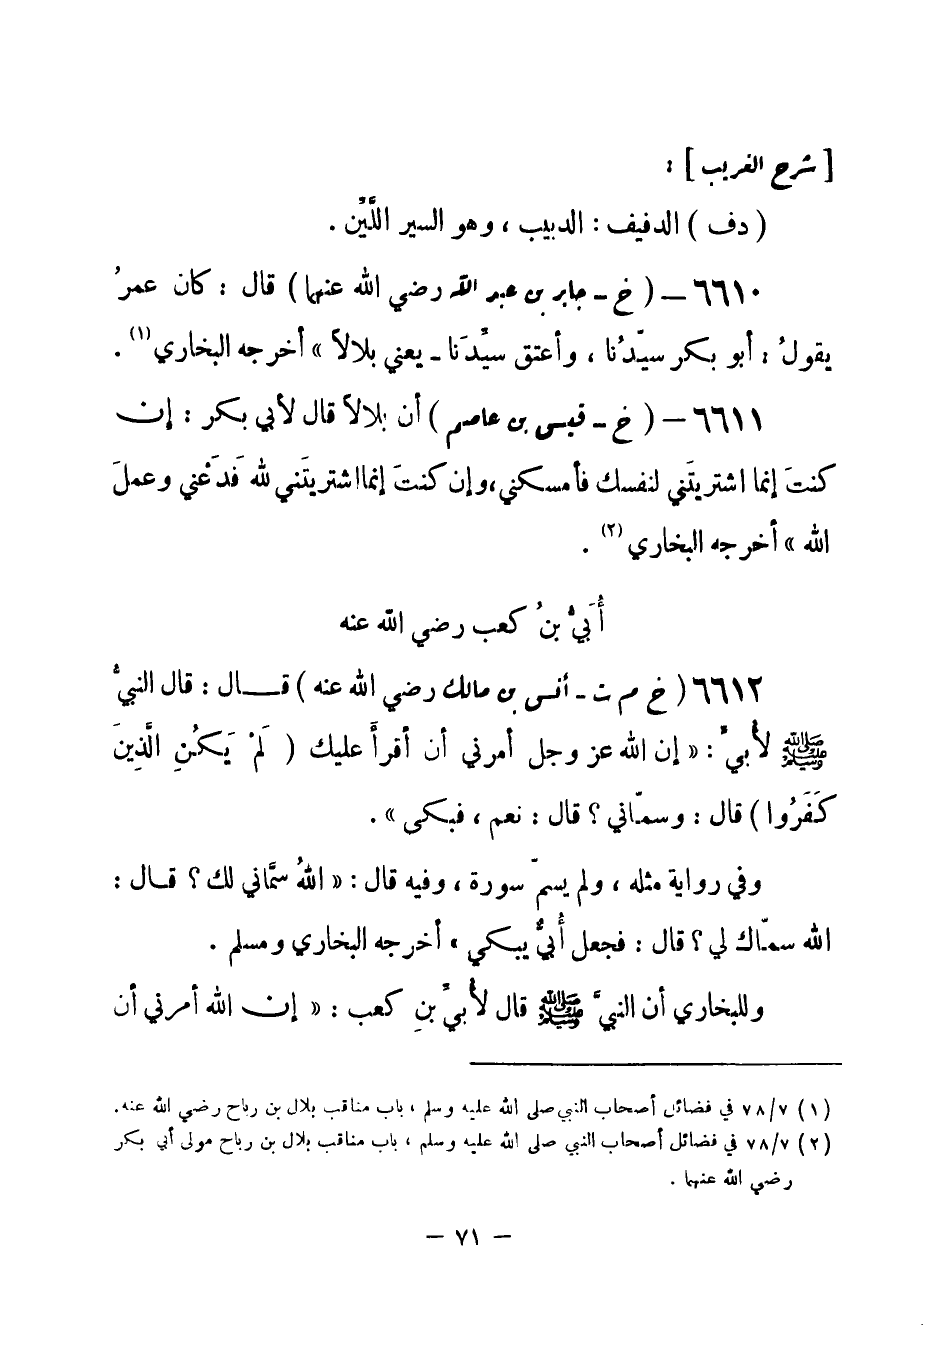 [ شرح الغريب ] :
( دف ) الدفيف : الدبيب ، وهو السير اللَّيِّن .
٦٦١٠ – ( خ – جابر بن عبد الله رضي الله عنهما ) قال : كان عمرُ
يقولُ : أبو بكر سيّدُنا ، وأعتق سيِّدَنا – يعني بلالاً » أخرجه البخاري (١) .
٦٦١١ – ( خ – قيس بن عاصم ) أن بلالاً قال لأبي بكر : إن
كنتَ إنما اشتريتَني لنفسك فأمسكني ، وإن كنتَ إنما اشتريتَني لله فَدَعْني وعملَ
الله » أخرجه البخاري (٢) .
أُبَيُّ بنُ كعب رضي الله عنه
٦٦١٢ ( خ م ت – أنس بن مالك رضي الله عنه ) قال : قال النبيُّ
ﷺ لأُبيٍّ : « إن الله عز وجل أمرني أن أقرأَ عليك ( لَمْ يَكُنِ الَّذِينَ
كَفَرُوا ) قال : وسمّاني ؟ قال : نعم ، فبكى » .
وفي رواية مثله ، ولم يسمّ سورة ، وفيه قال : « اللهُ سمَّاني لك ؟ قال :
الله سمّاك لي ؟ قال : فجعل أُبيٌّ يبكي » أخرجه البخاري ومسلم .
وللبخاري أن النبيَّ ﷺ قال لأُبيِّ بنِ كعب : « إن الله أمرني أن
(١) ٧٨/٧ في فضائل أصحاب النبي صلى الله عليه وسلم ، باب مناقب بلال بن رباح رضي الله عنه .
(٢) ٧٨/٧ في فضائل أصحاب النبي صلى الله عليه وسلم ، باب مناقب بلال بن رباح مولى أبي بكر
رضي الله عنهما .
– ٧١ –